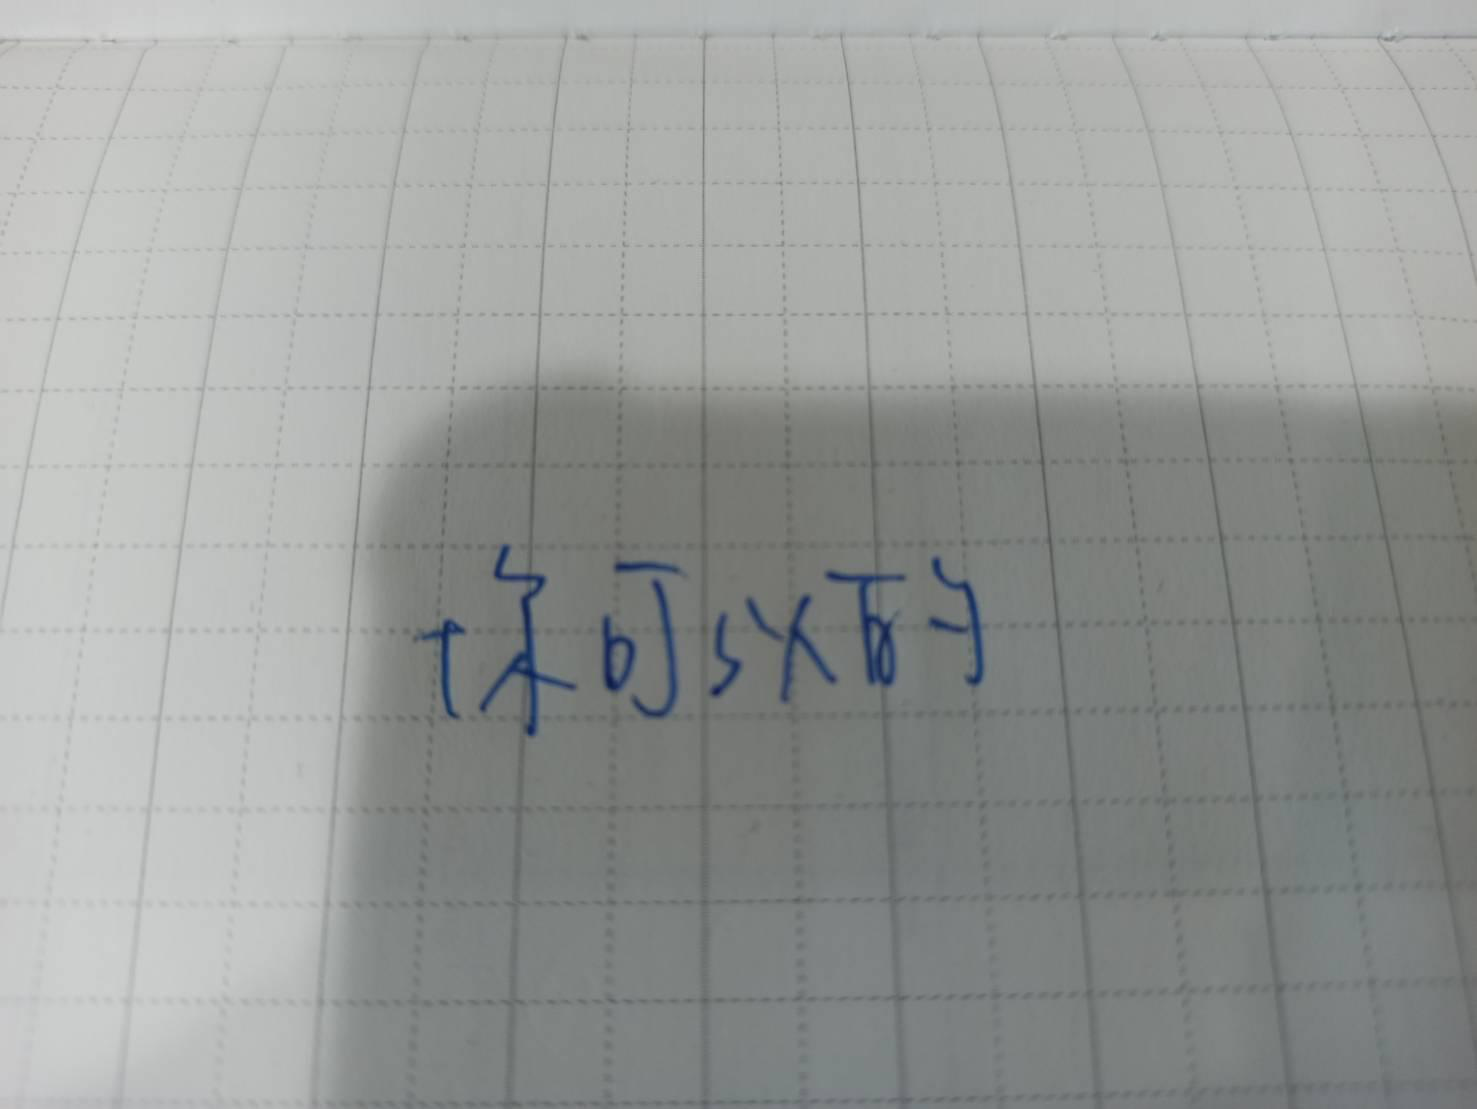 你可以的